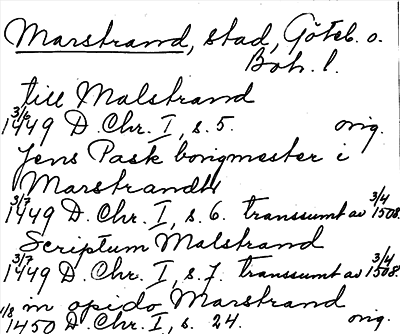 Marstrand, stad, Göteb. o.
Boh. l.
till Malstrand
3/6 1449 D. Chr. I, s. 5. orig.
Jens Pask borgmester i
Marstrandh
3/7 1449 D. Chr. I, s. 6. transsumt av 3/4 1508.
Scriptum Malstrand
3/7 1449 D. Chr. I, s. 7. transsumt av 3/4 1508.
in opido Marstrand
1/8 1450 D. Chr. I, s. 24. orig.